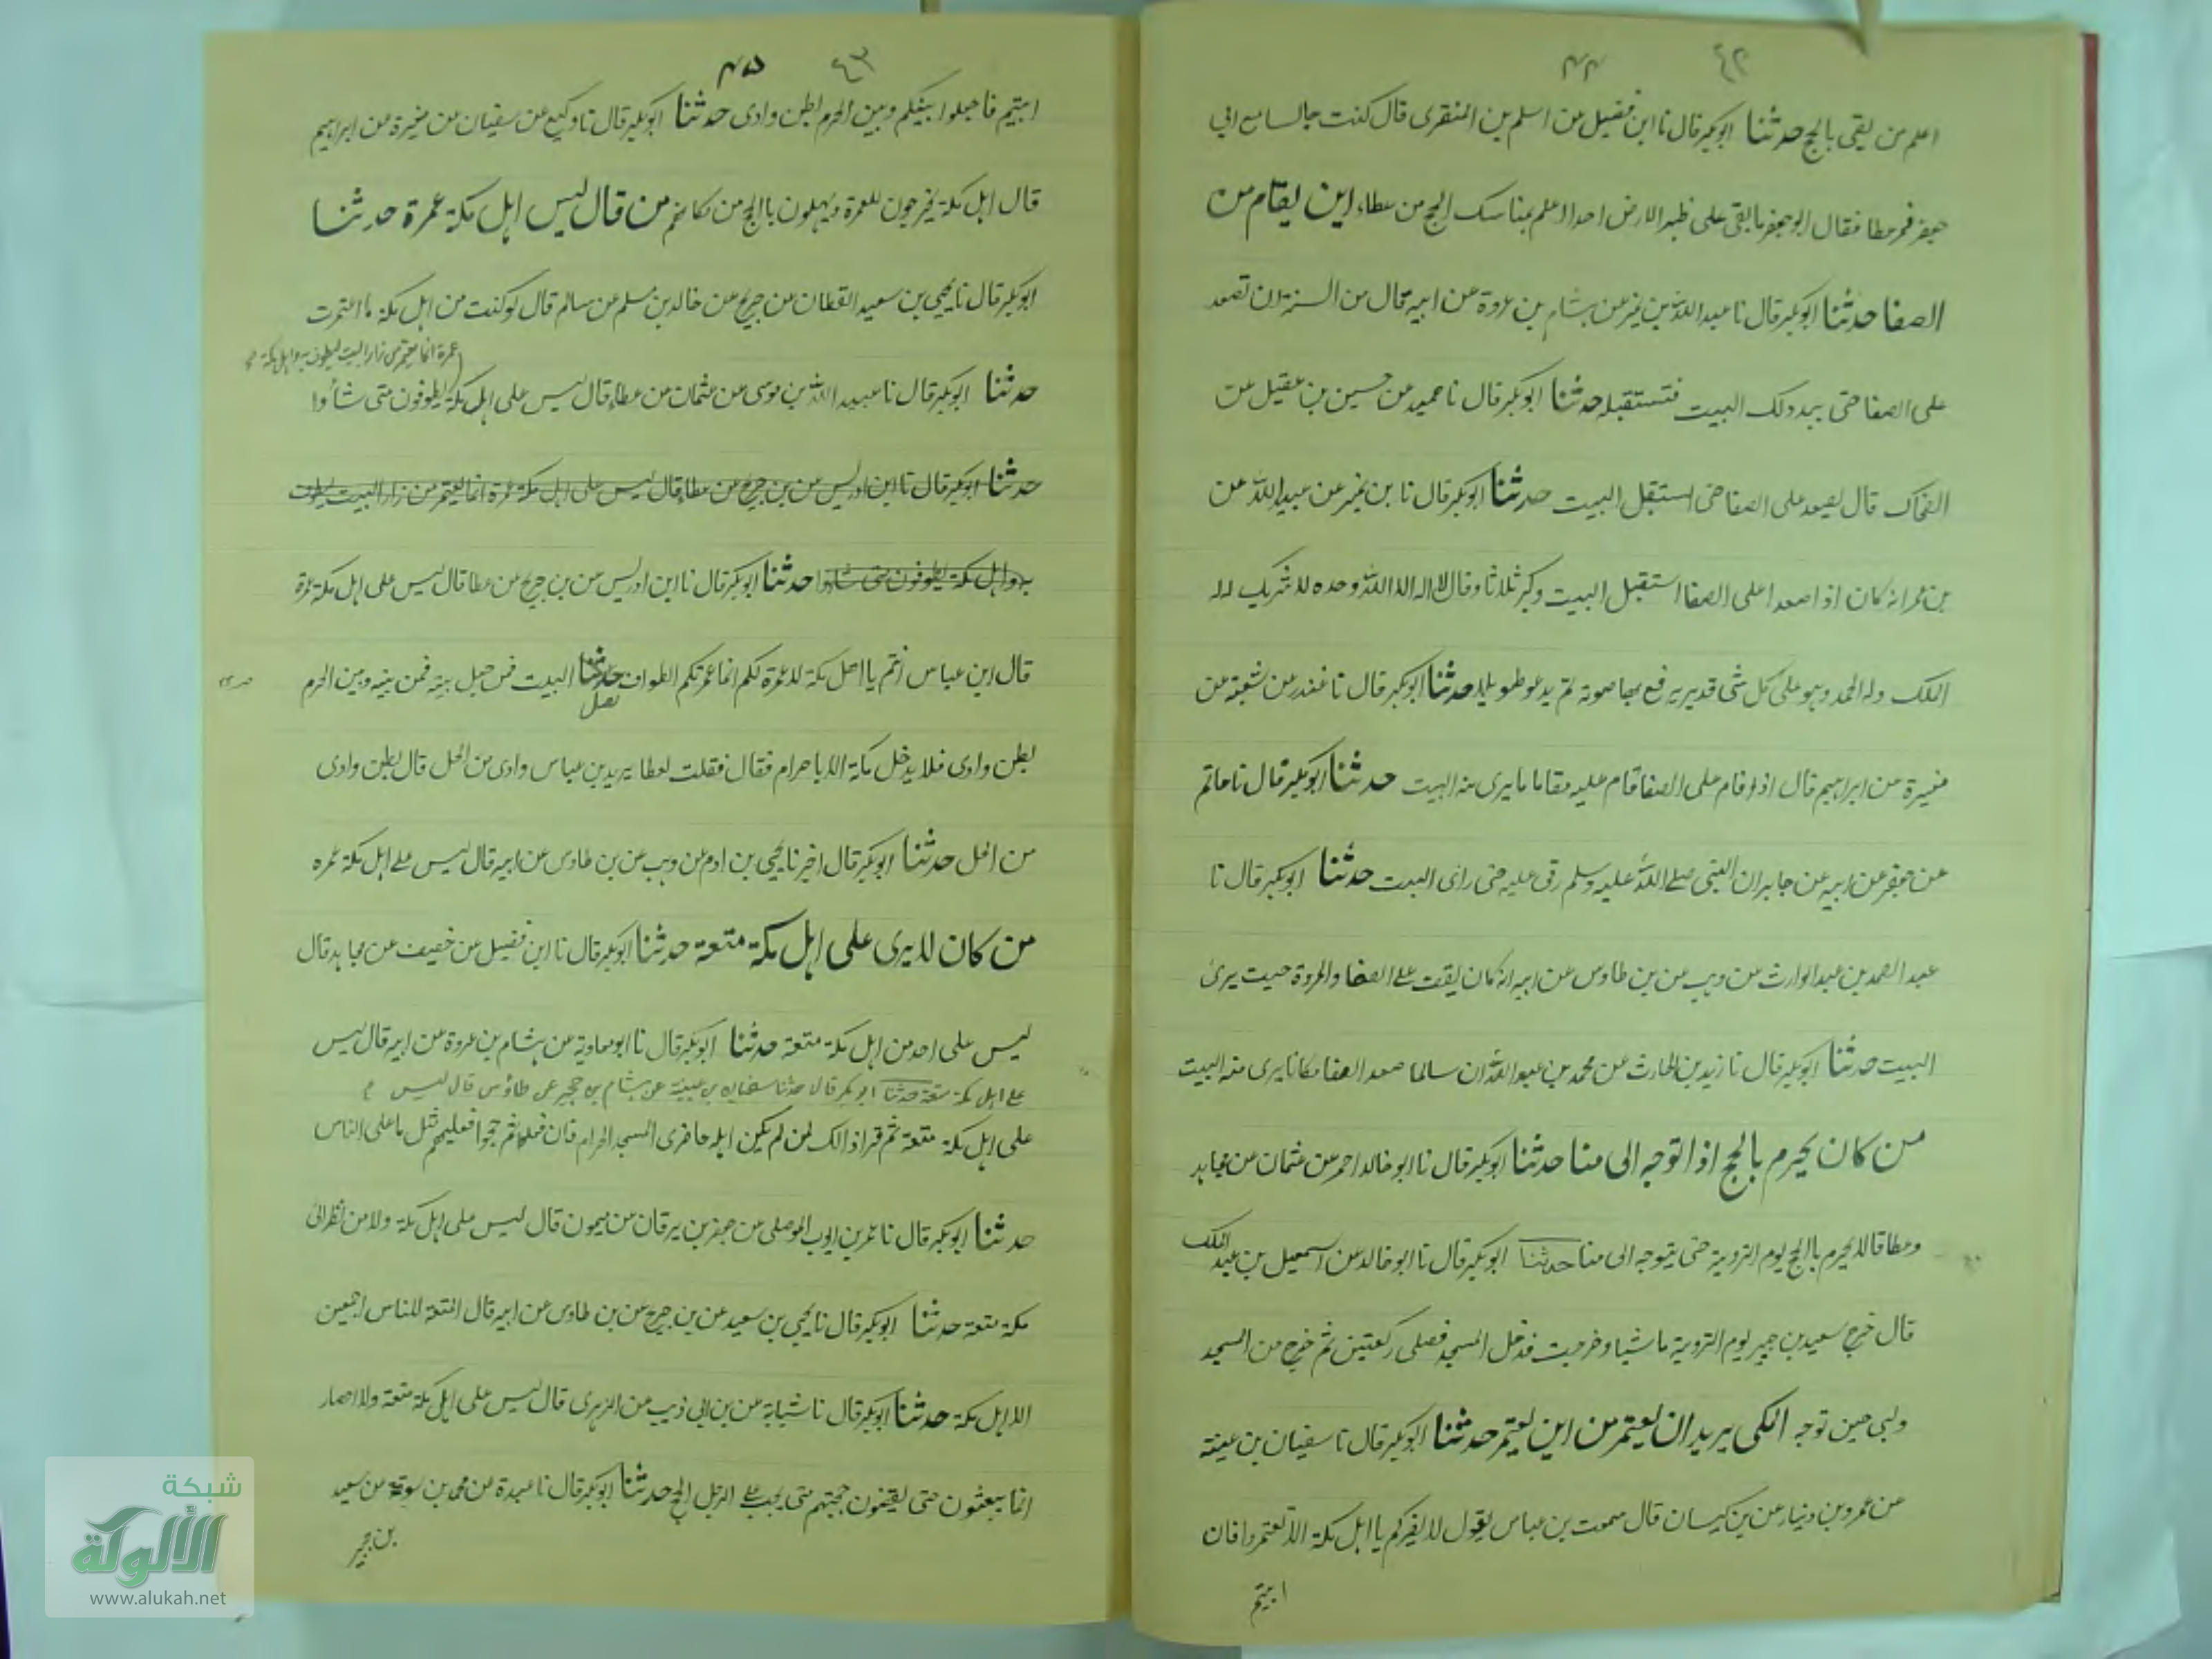 ٤٢ ٤٤
اعلم من بقى بالحج حدثنا ابوبكر قال نا ابن فضيل عن اسلم بن المنقرى قال كنت جالسا مع ابى
جعفر فمر عطا فقال ابو جعفر ما بقى على ظهر الارض احد اعلم بمناسك الحج من عطاء اين يقام من
الصفا حدثنا ابوبكر قال نا عبد الله بن نمير عن هشام بن عروة عن ابيه قال من السنة ان تصعد
على الصفا حتى يبدو لك البيت فتستقبله حدثنا ابوبكر قال نا حميد عن حسين بن عقيل عن
الضحاك قال يصعد على الصفا حتى استقبل البيت حدثنا ابوبكر قال نا بن نمير عن عبيد الله عن
بن عمر انه كان اذا صعد اعلى الصفا استقبل البيت وكبر ثلاثا وقال لا اله الا الله وحده لا شريك له له
الملك وله الحمد وهو على كل شى قدير يرفع بها صوته ثم يدعو طويلا حدثنا ابوبكر قال نا غندر عن شعبة عن
مغيرة عن ابراهيم قال اذا قام على الصفا قام عليه مقاما ما يرى منه البيت حدثنا ابوبكر قال نا حاتم
عن جعفر عن ابيه عن جابر ان النبى صلے الله عليه وسلم رقى عليه حتى راى البيت حدثنا ابوبكر قال نا
عبد الصمد بن عبد الوارث عن وهب عن بن طاوس عن ابيه انه كان يقف علے الصفا والمروة حيث يرى
البيت حدثنا ابوبكر قال نا زيد بن الحارث عن محمد بن عبد الله ان سالما صعد الصفا مكانا يرى منه البيت
من كان يحرم بالحج اذا توجه الى منا حدثنا ابوبكر قال نا ابو خالد احمر عن عثمان عن مجاهد
وعطا قالا يحرم باالحج يوم التروية حتى يتوجه الى منا حدثنا ابوبكر قال نا ابو خالد عن اسمعيل بن عبد الملك
قال خرج سعيد بن جبير يوم التروية ماشيا وخرجت فدخل المسجد فصلى ركعتين ثم خرج من المسجد
ولبى حين توجه المكى يريد ان يعتمر من اين يعتمر حدثنا ابوبكر قال نا سفيان بن عيينة
عن عمرو بن دينار عن بن كيسان قال سمعت بن عباس يقول لا يضركم يا اهل مكة الا تعتمروا فان
ابيتم
٤٣ ٤٥
ابيتم فاجعلوا بينكم وبين الحرم بطن وادى حدثنا ابوبكر قال نا وكيع عن سفيان عن مغيرة عن ابراهيم
قال اهل مكة يخرجون للعمرة ويهلون باالحج من مكانهم من قال ليس اهل مكة عمرة حدثنا
ابوبكر قال نا يحيى بن سعيد القطان عن جريج عن خالد بن مسلم عن سالم قال لو كنت من اهل مكة ما اعتمرت
عمرة انما يعتمر من زار البيت ليطوف به واهل مكة
حدثنا ابوبكر قال نا عبيد الله بن موسى عن عثمان عن عطاء قال ليس على اهل مكة يطوفون متى شاؤا
حدثنا ابوبكر قال نا ابن ادريس عن بن جريج عن عطا قال ليس على اهل مكة عمرة انما يعتمر من زار البيت ليطوف
به واهل مكة يطوفون متى شاؤا حدثنا ابوبكر قال نا ابن ادريس عن بن جريج عن عطا قال ليس على اهل مكة عمرة
قال ابن عباس انتم يا اهل مكة لا عمرة لكم انما عمرتكم الطواف حدثنا البيت فمن جعل بينه فمن بينه وبين الحرم
بطن وادى فلا يدخل مكة الا باحرام فقال فقلت لعطا يريد بن عباس وادى من الحل قال بطن وادى
من الحل حدثنا ابوبكر قال اخبرنا يحيى بن ادم عن وهب عن بن طاوس عن ابيه قال ليس علے اهل مكة عمره
من كان لا يرى على اهل مكة متعة حدثنا ابوبكر قال نا ابن فضيل عن خصيف عن مجاهد قال
ليس على احد من اهل مكة متعة حدثنا ابوبكر قال نا ابو معاوية عن هشام بن عروة عن ابيه قال ليس
علے اهل مكة متعة حدثنا ابوبكر قال حدثنا سفيان بن عيينة عن هشام بن حجير عن طاؤس قال ليس
على اهل مكة متعة ثم قرا ذالك لمن لم يكن اهله حاضرى المسجد الحرام فان فعلوا ثم حجوا فعليهم مثل ما على الناس
حدثنا ابوبكر قال نا عمر بن ايوب الموصلى عن جعفر بن برقان عن ميمون قال ليس على اهل مكة ولا من نظر الى
مكة متعة حدثنا ابوبكر قال نا يحيى بن سعيد عن بن جريج عن بن طاوس عن ابيه قال المتعة للناس اجمعين
الا اهل مكة حدثنا ابوبكر قال نا شبابة عن بن ابى ذيب عن الزهرى قال ليس على اهل مكة متعة ولا احصار
انما يبعثون حتى يقضون حجتهم متى يجب علے الرجل الحج حدثنا ابوبكر قال نا عبدة عن محمد بن سوقة عن سعيد
بن جبير
شبكة
الألوكة
www.alukah.net